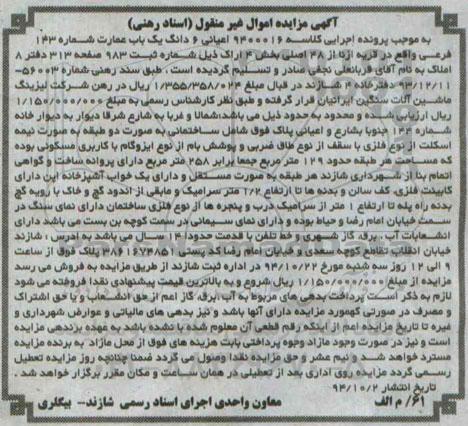 آگهی مزایده اموال غیر منقول (اسناد رهنی)
به موجب پرونده اجرایی کلاسه ۹۴۰۰۰۱۶ اعیانی ۶ دانگ یک باب عمارت شماره ۱۴۳
فرعی واقع در قریه ازنا از ۳۸ اصلی بخش ۴ اراک ذیل شماره ثبت ۹۸۳ صفحه ۳۱۳ دفتر ۸
املاک به نام آقای قربانعلی نجفی صادر و تسلیم گردیده است . طبق سند رهنی شماره ۵۶۰۰۳-
۹۳/۱۲/۱۱ دفترخانه شازند در قبال مبلغ ۱/۳۵۵/۳۵۸/۰۲۴ ریال در رهن شرکت لیزینگ
ماشین آلات سنگین ایرانیان قرار گرفته و طبق نظر کارشناس رسمی به مبلغ ۱/۱۵۰/۰۰۰/۰۰۰
ریال ارزیابی شده و محدود به حدود ذیل می باشد:شمالا و غربا به شارع شرقا دیوار به دیوار خانه
شماره ۱۴۴ جنوبا بشارع و اعیانی پلاک فوق شامل ساختمانی به صورت دو طبقه به صورت نیمه
اسکلت از نوع فلزی با سقف از نوع طاق ضربی و پوشش بام از نوع ایزوگام با کاربری مسکونی بوده
که مساحت هر طبقه حدود ۱۲۹ متر مربع جمعا برابر ۲۵۸ متر مربع دارای پروانه ساخت و گواهی
اتمام بنا از شهرداری شازند هر طبقه به صورت مستقل و دارای یک خواب آشپزخانه این دارای
کابینت فلزی کف سالن و بدنه ها تا ارتفاع ۱/۲ متر سرامیک و مابقی از اندود گچ و خاک با رویه گچ
بدنه راه پله تا ارتفاع ۱ متر از سرامیک درب و پنجره ها از نوع فلزی ساختمان دارای نمای سنگ در
سمت خیابان امام رضا و حیاط بوده و دارای نمای سیمانی در سمت کوچه بن بست می باشد دارای
انشعابات آب . برق، گاز شهری و خط تلفن با قدمت حدودا ۴ سال می باشد به ادرس : شازند
خیابان انقلاب تقاطع کوچه سعدی و خیابان امام رضا کد پستی ۳۸۶۱۶۷۳۸۵۱ پلاک فوق از ساعت
۹ الی ۱۲ روز سه شنبه مورخ ۹۴/۱۰/۲۲ در اداره ثبت شازند از طریق مزایده به فروش می رسد
مزایده از مبلغ ۱/۱۵۰/۰۰۰/۰۰۰ ریال شروع و به بالاترین قیمت پیشنهادی نقدا فروخته می شود
لازم به ذکر است پرداخت بدهی های مربوط به آب،برق، گاز اعم از حق انشعاب و یا حق اشتراک
و مصرف در صورتی که مورد مزایده دارای آنها باشد و نیز بدهی های مالیاتی و عوارض شهرداری و
غیره تا تاریخ مزایده اعم از اینکه رقم قطعی آن معلوم شده یا نشده باشد به عهده برندهی مزایده
است و نیز در صورت وجود مازاد وجوه پرداختی بابت هزینه های فوق از محل مازاد به برنده مزایده
مسترد خواهد شد و نیم عشر و حق مزایده نقدا وصول می گردد ضمنا چنانچه روز مزایده تعطیل
رسمی گردد مزایده روی اداری بعد از تعطیلی در همان ساعت و مکان مقرر برگزار خواهد شد .
تاریخ انتشار ۹۴/۱۰/۲
۶۱/ م الف
معاون واحدی اجرای اسناد رسمی شازند- بیگلری